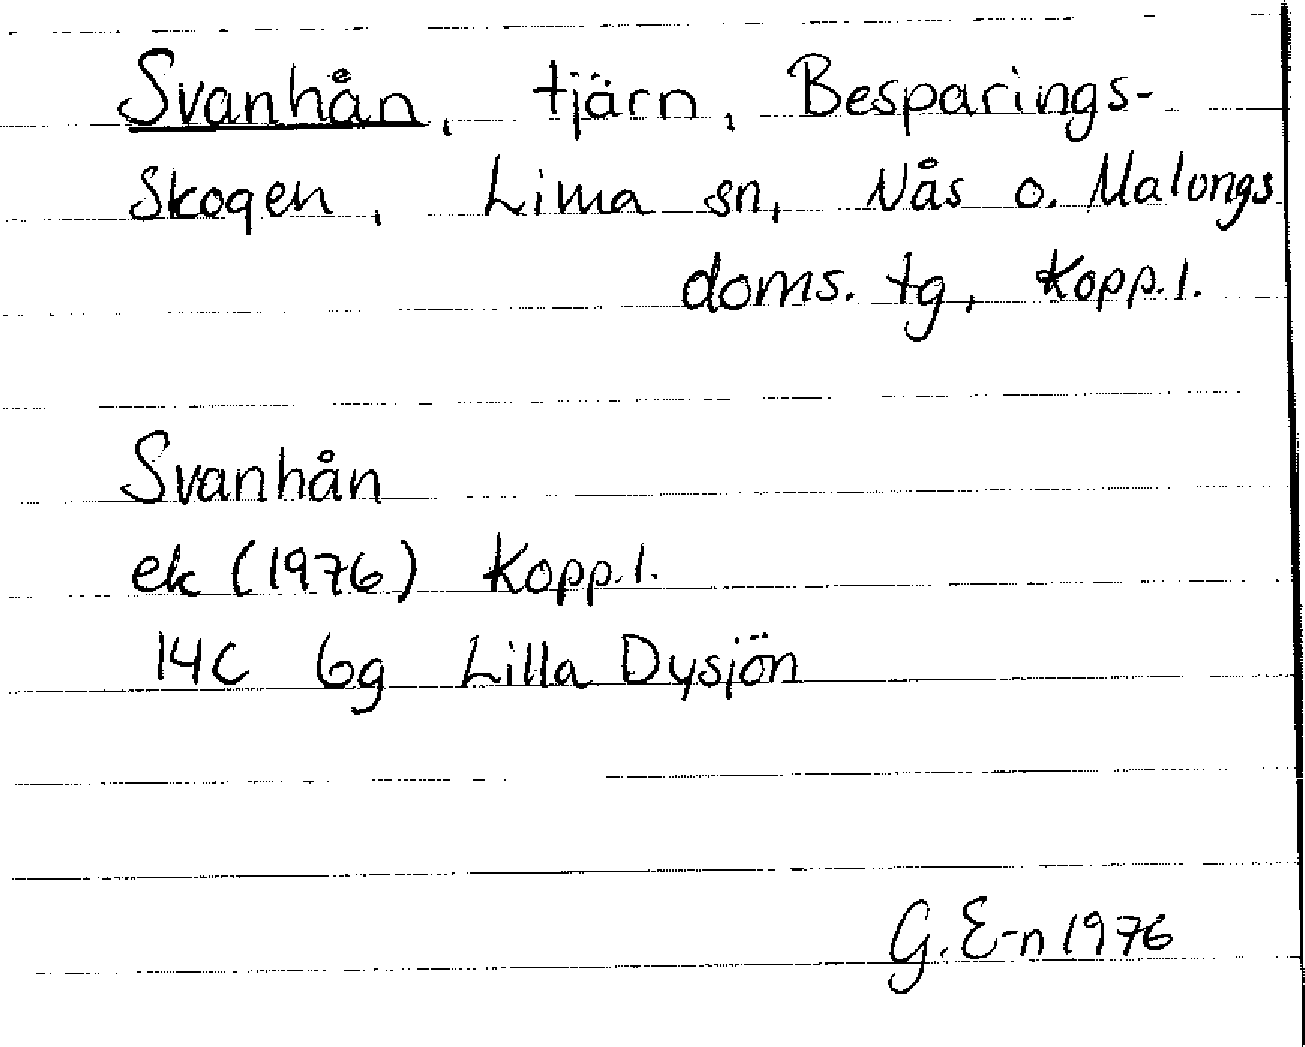 Svanhån, tjärn, Besparings-
skogen, Lima sn, Nås o. Malungs
doms. tg, Kopp.l.
Svanhån
ek (1976) Kopp.l.
14C 6g Lilla Dysjön
G. E-n 1976